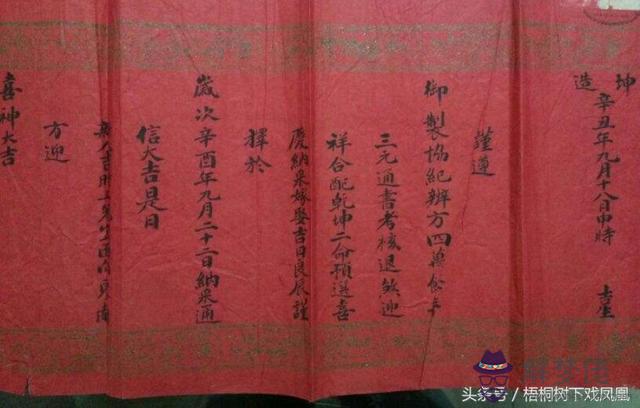 坤造 辛丑年九月十八日申時 吉星
謹遵
御製協紀辦方四萬餘年
三元通書考核退煞迎
祥合配乾坤二命預選喜
慶納采嫁娶吉日良辰謹
擇於
歲次辛酉年九月二十二日納采通
信大吉是日
方迎
喜神大吉
头条号／梧桐树下戏凤凰